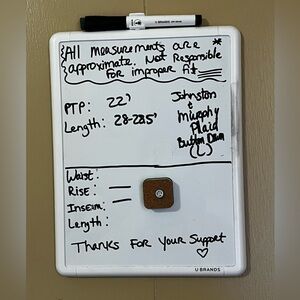 All measurements are
approximate. Not Responsible
For improper fit
PTP: 22'
Length: 28-28.5'
Johnston
&
Murphy
Plaid
Button Down
(L)
Waist:
Rise:
Inseam:
Length:
Thanks For Your Support
U BRANDS